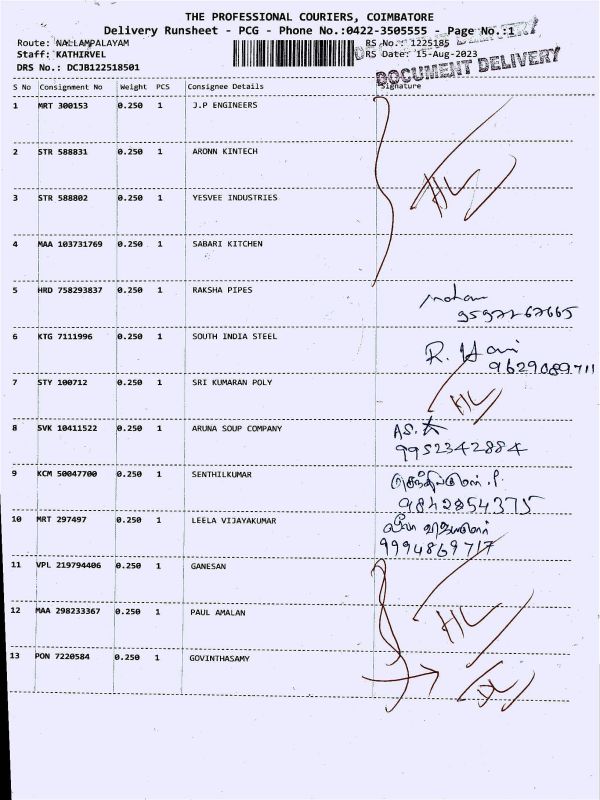 THE PROFESSIONAL COURIERS, COIMBATORE
Delivery Runsheet - PCG - Phone No.:0422-3505555 - Page No.:1
Route: NALLAMPALAYAM RS No.: 1225185
Staff: KATHIRVEL RS Date: 15-Aug-2023
DRS No.: DCJB122518501 DOCUMENT DELIVERY
S No Consignment No Weight PCS Consignee Details Signature
1 MRT 300153 0.250 1 J.P ENGINEERS
2 STR 588831 0.250 1 ARONN KINTECH
HL
3 STR 588802 0.250 1 YESVEE INDUSTRIES
4 MAA 103731769 0.250 1 SABARI KITCHEN
5 HRD 758293837 0.250 1 RAKSHA PIPES mohan
6 KTG 7111996 0.250 1 SOUTH INDIA STEEL R. Hari
9629089711
7 STY 100712 0.250 1 SRI KUMARAN POLY HL
8 SVK 10411522 0.250 1 ARUNA SOUP COMPANY
9952342884
9 KCM 50047700 0.250 1 SENTHILKUMAR
9842854375
10 MRT 297497 0.250 1 LEELA VIJAYAKUMAR
9994869717
11 VPL 219794406 0.250 1 GANESAN
12 MAA 298233367 0.250 1 PAUL AMALAN HL
13 PON 7220584 0.250 1 GOVINTHASAMY